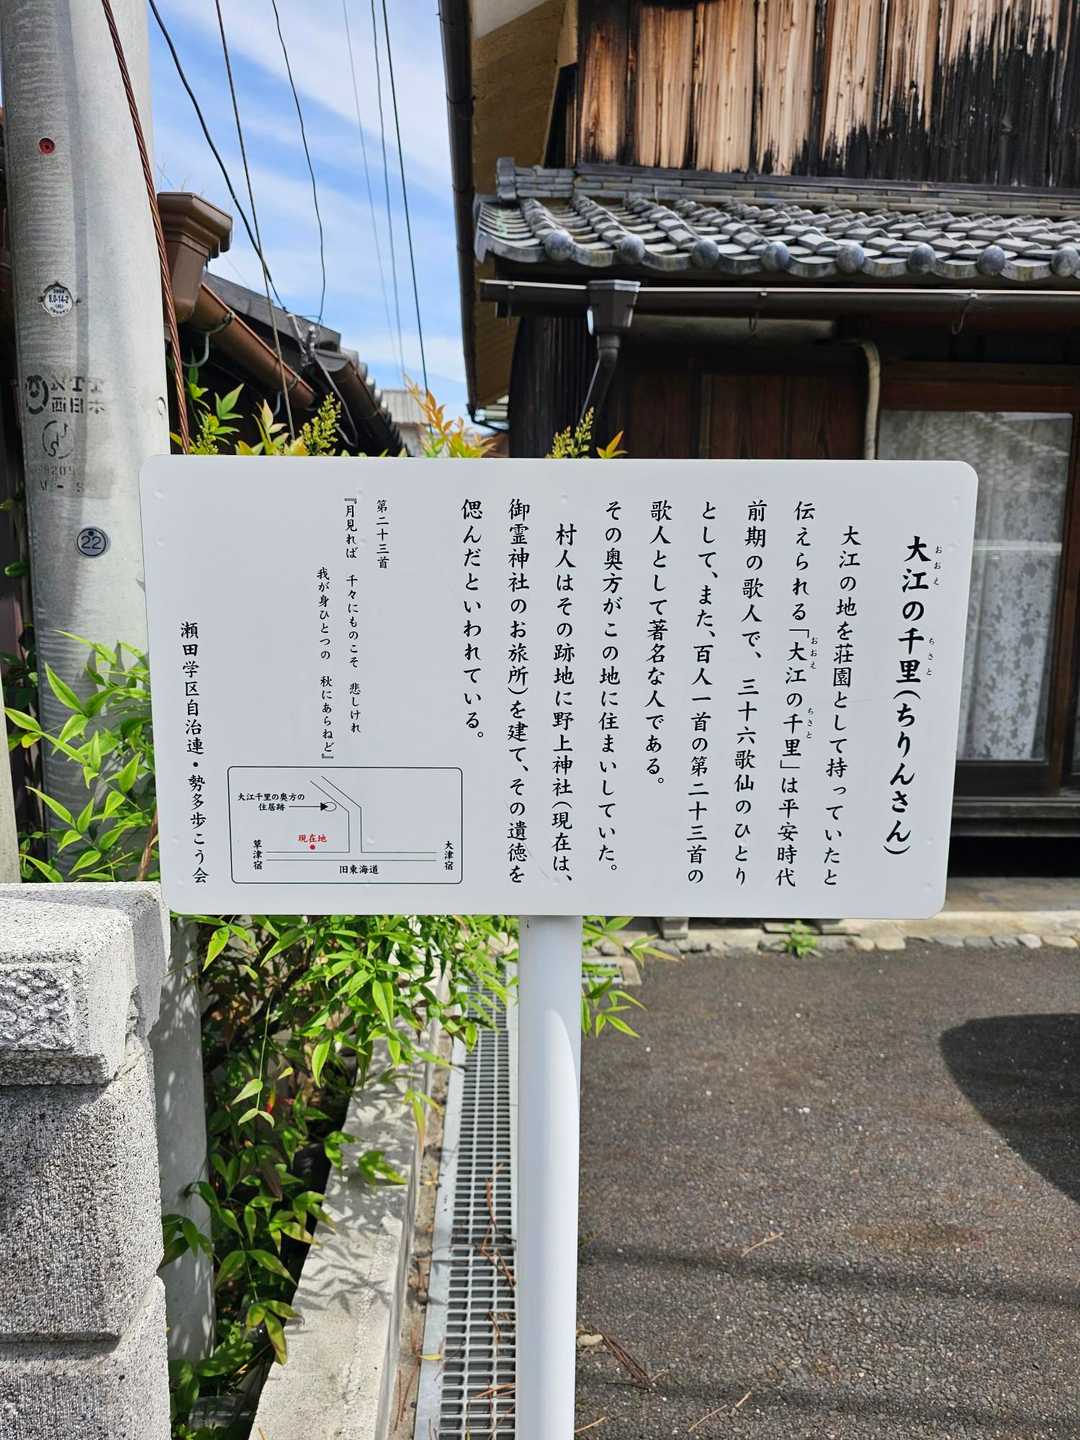 大江の千里(ちりんさん)
おおえ
ちさと
大江の地を荘園として持っていたと
伝えられる「大江の千里」は平安時代
おおえ
ちさと
前期の歌人で、三十六歌仙のひとり
として、また、百人一首の第二十三首の
歌人として著名な人である。
その奥方がこの地に住まいしていた。
村人はその跡地に野上神社(現在は、
御霊神社のお旅所)を建て、その遺徳を
偲んだといわれている。
第二十三首
『月見れば 千々にものこそ 悲しけれ
我が身ひとつの 秋にあらねど』
瀬田学区自治連・勢多歩こう会
大江千里の奥方の
住居跡
現在地
草津宿
旧東海道
大津宿
NTT
西日本
22